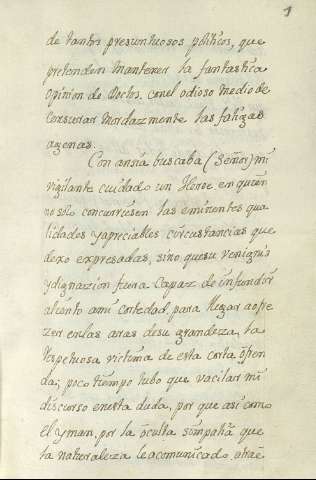 1
de tantos presuntuosos politicos, que
pretenden mantener la fantastica
opinion de Doctos, con el odioso medio de
censurar mordazmente las fatigas
agenas.
Con ansia buscaba (Señor) mi
vigilante cuidado un Heroe en quien
no solo concurriesen las eminentes qua
lidades y apreciables circustancias que
dexo expresadas, sino que su venigna
y dignazion fuera capaz de infundir
aliento a mi cortedad, para llegar a ofre
zer en las aras de su grandeza, la
respetuosa victima de esta corta ofren
da; poco tiempo tubo que vacilar mi
discurso en esta duda, por que asi como
el yman, por la oculta simpatia que
la naturaleza le a comunicado, atrae